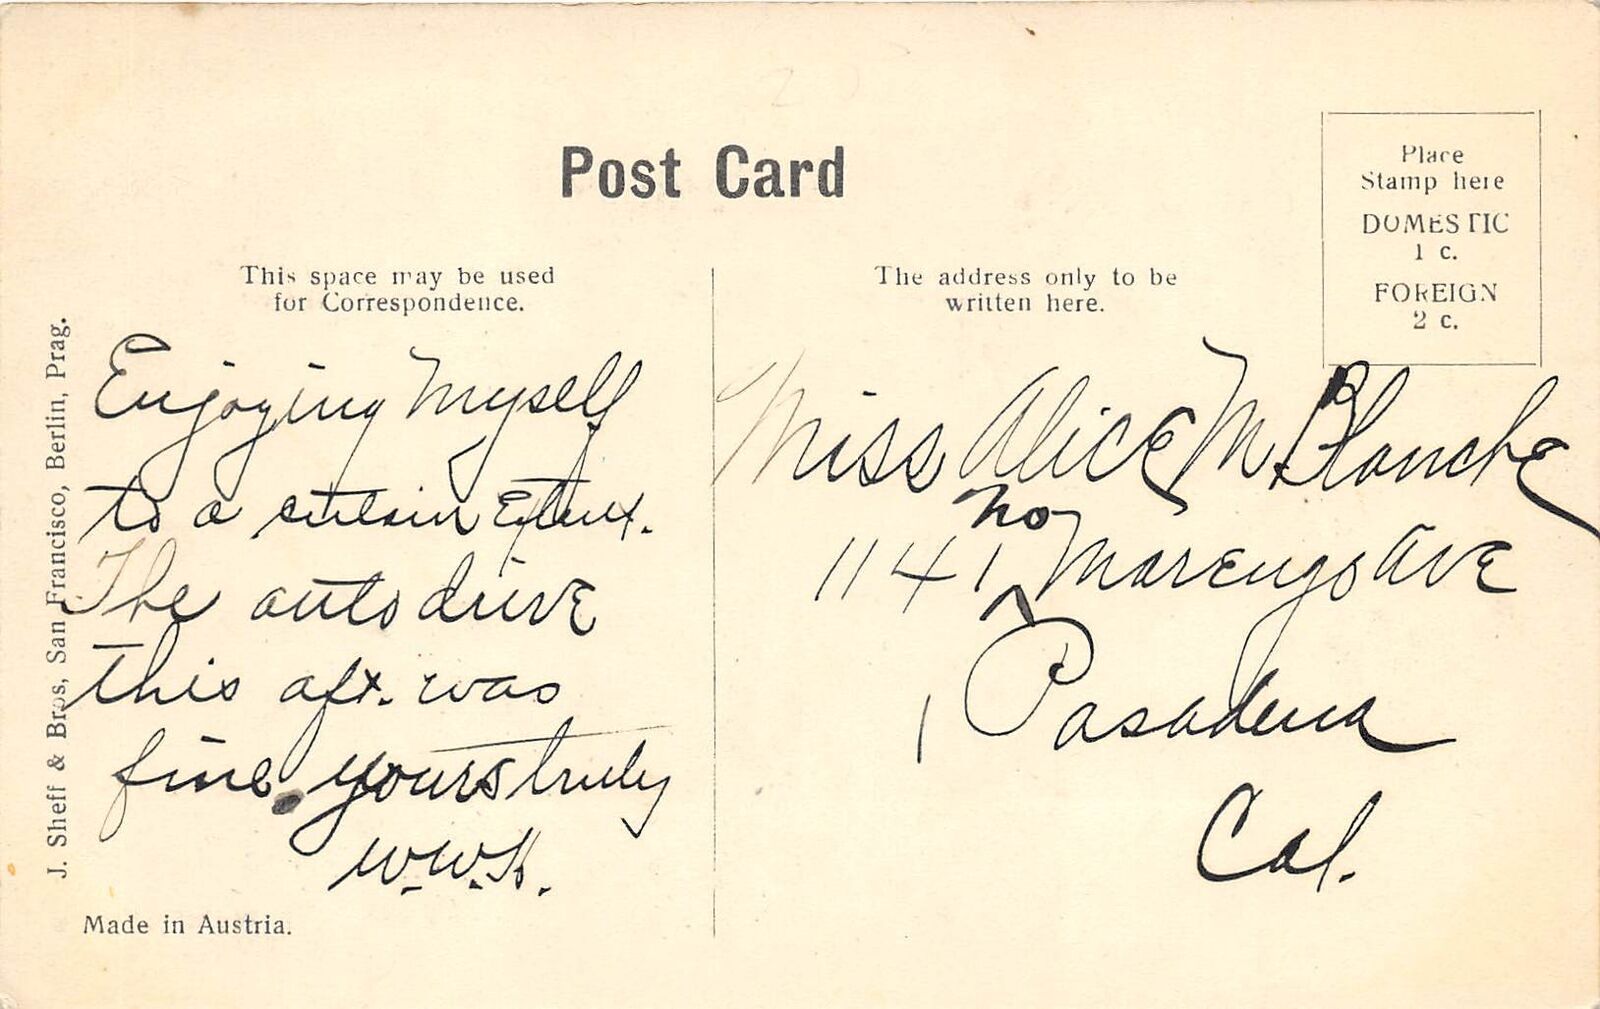 Post Card
Place
Stamp here
DOMESTIC
1 c.
FOREIGN
2 c.
This space may be used
for Correspondence.
The address only to be
written here.
J. Sheff & Bros, San Francisco, Berlin, Prag.
Enjoying myself
to a certain Extent.
The auto drive
this aft. was
fine. yours truly
W.W.H.
Miss Alice M. Blanche
1141 No Marengo Ave
Pasadena
Cal.
Made in Austria.